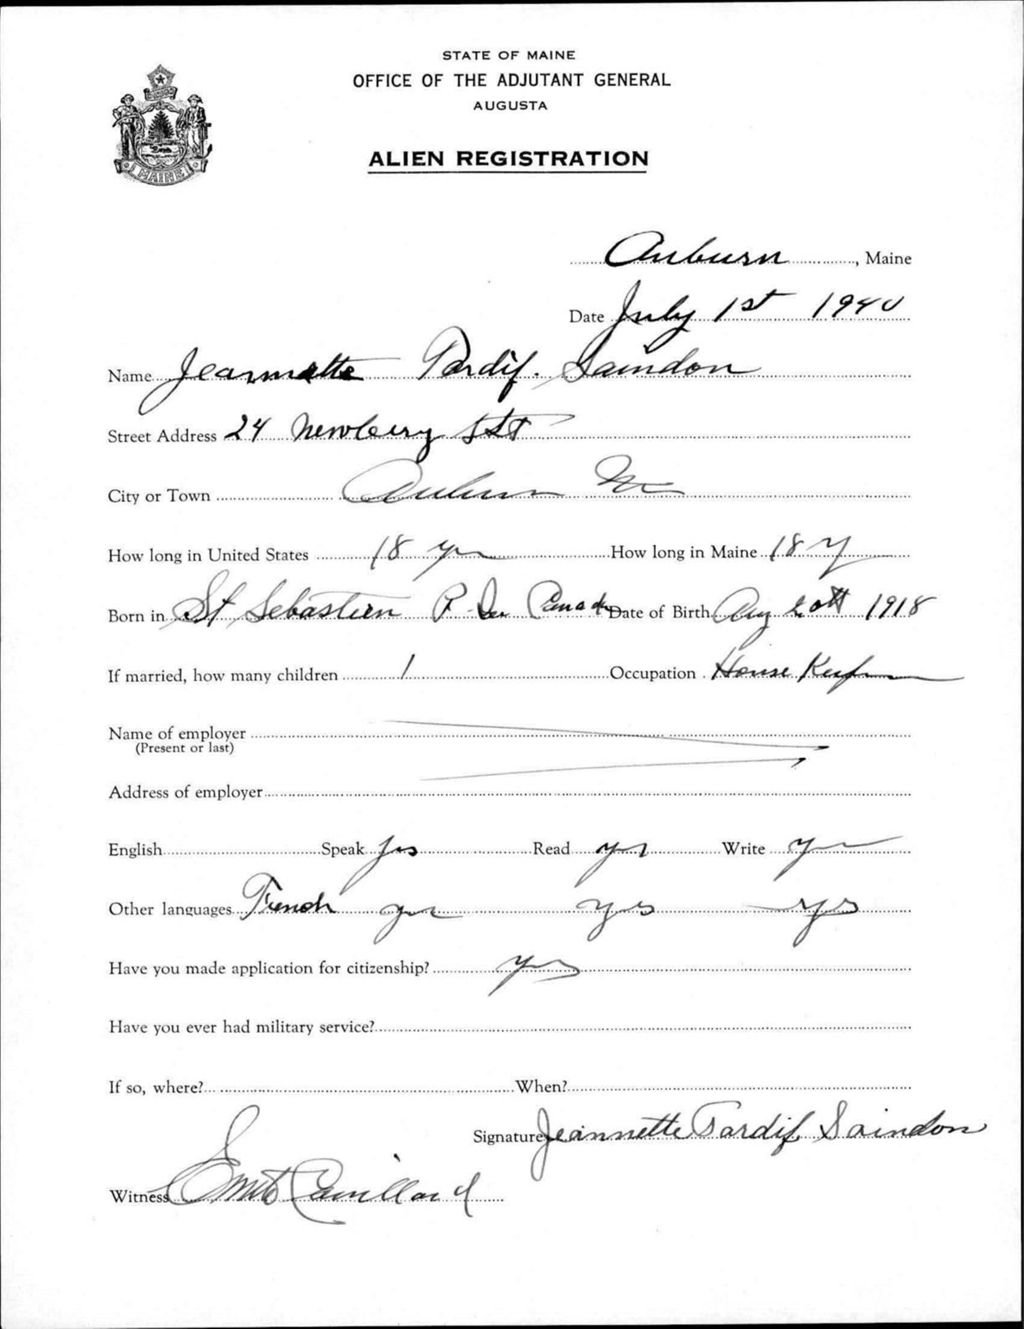 STATE OF MAINE
OFFICE OF THE ADJUTANT GENERAL
AUGUSTA
ALIEN REGISTRATION
MAINE
Auburn, Maine
Date July 1st 1940
Name Jeannette Tardif. Saindon
Street Address 24 Newbery St
City or Town Auburn Me
How long in United States 18 yr How long in Maine 18 y
Born in St. Sebastien P. Canada Date of Birth Aug 20th 1918
If married, how many children 1 Occupation House Keeper
Name of employer
(Present or last)
Address of employer
English Speak yes Read yes Write yes
Other languages French yes yes yes
Have you made application for citizenship? yes
Have you ever had military service?
If so, where? When?
Signature Jeannette Tardif Saindon
Witness